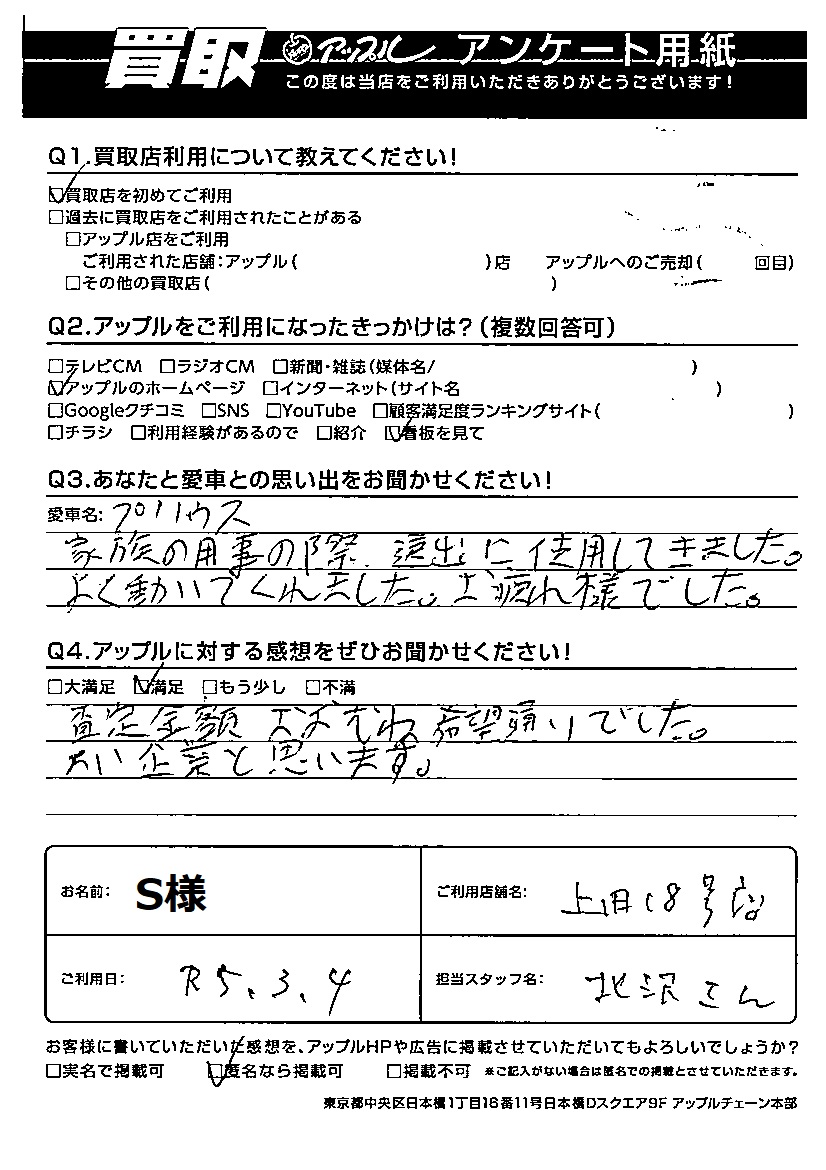 買取 アップル アンケート用紙
この度は当店をご利用いただきありがとうございます!
Q1.買取店利用について教えてください!
☑買取店を初めてご利用
□過去に買取店をご利用されたことがある
□アップル店をご利用
ご利用された店舗:アップル( )店 アップルへのご売却( 回目)
□その他の買取店( )
Q2.アップルをご利用になったきっかけは?(複数回答可)
□テレビCM □ラジオCM □新聞・雑誌(媒体名/ )
☑アップルのホームページ □インターネット(サイト名 )
□Googleクチコミ □SNS □YouTube □顧客満足度ランキングサイト( )
□チラシ □利用経験があるので □紹介 ☑看板を見て
Q3.あなたと愛車との思い出をお聞かせください!
愛車名: プリウス
家族の用事の際、遠出に使用してきました。
よく動いてくれました。お疲れ様でした。
Q4.アップルに対する感想をぜひお聞かせください!
□大満足 ☑満足 □もう少し □不満
査定金額 おおむね希望通りでした。
良い企業と思います。
お名前: S様 ご利用店舗名: 上田18号店
ご利用日: R5.3.4 担当スタッフ名: 北沢さん
お客様に書いていただいた感想を、アップルHPや広告に掲載させていただいてもよろしいでしょうか?
□実名で掲載可 ☑匿名なら掲載可 □掲載不可 ※ご記入がない場合は匿名での掲載とさせていただきます。
東京都中央区日本橋1丁目16番11号日本橋Dスクエア9F アップルチェーン本部